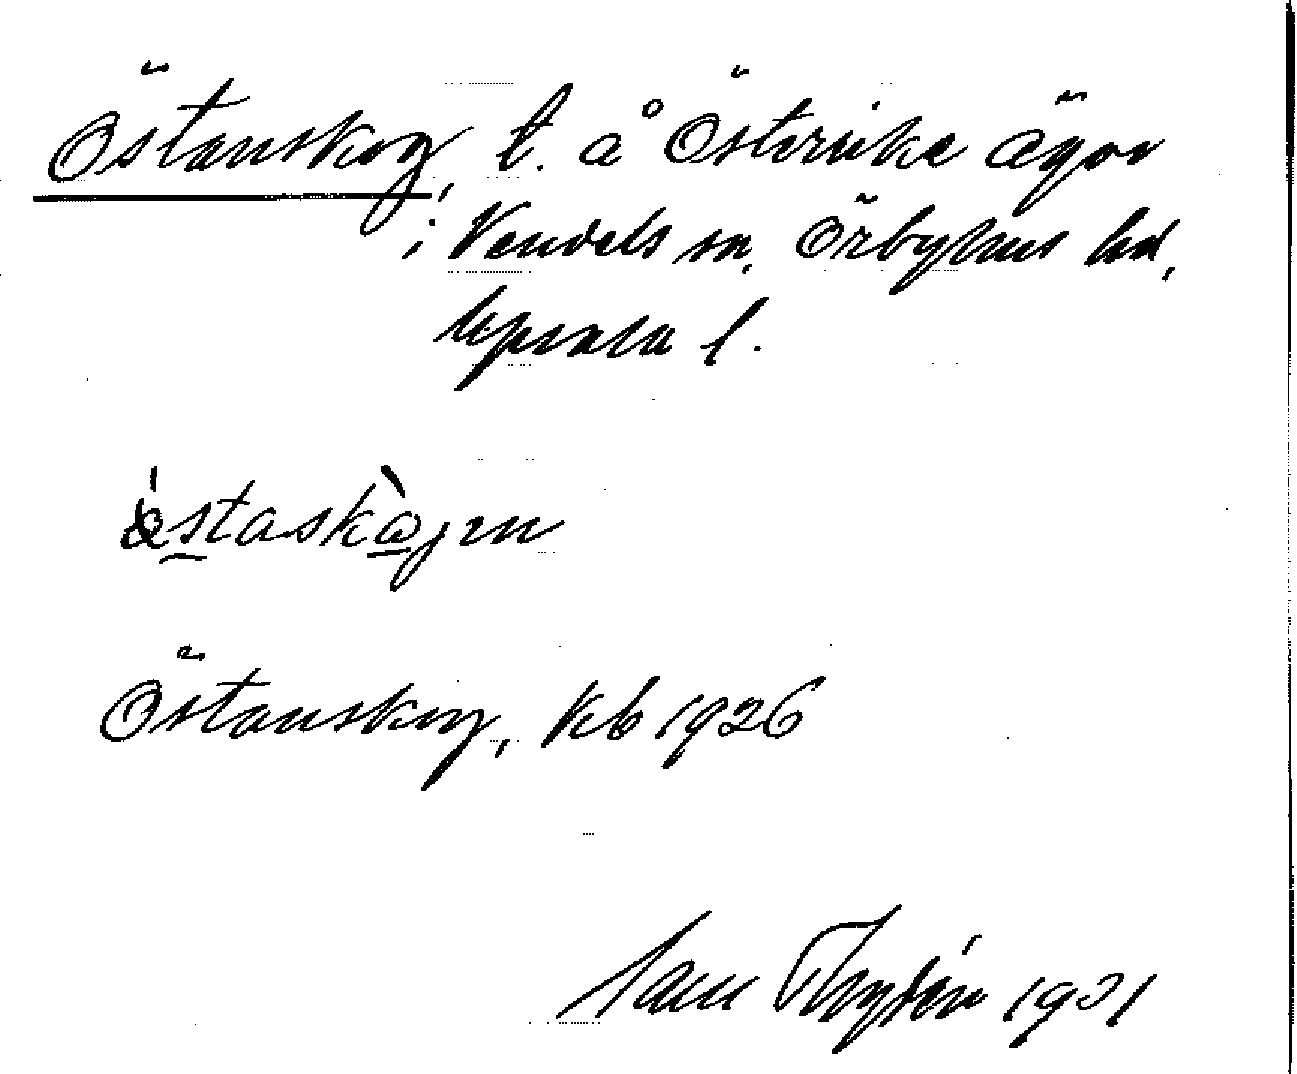 Östanskog, t. å Österrike ägor
i Vendels sn, Örbyhus hd,
Upsala l.
östaskògen
Östanskog, Kb 1926
1931